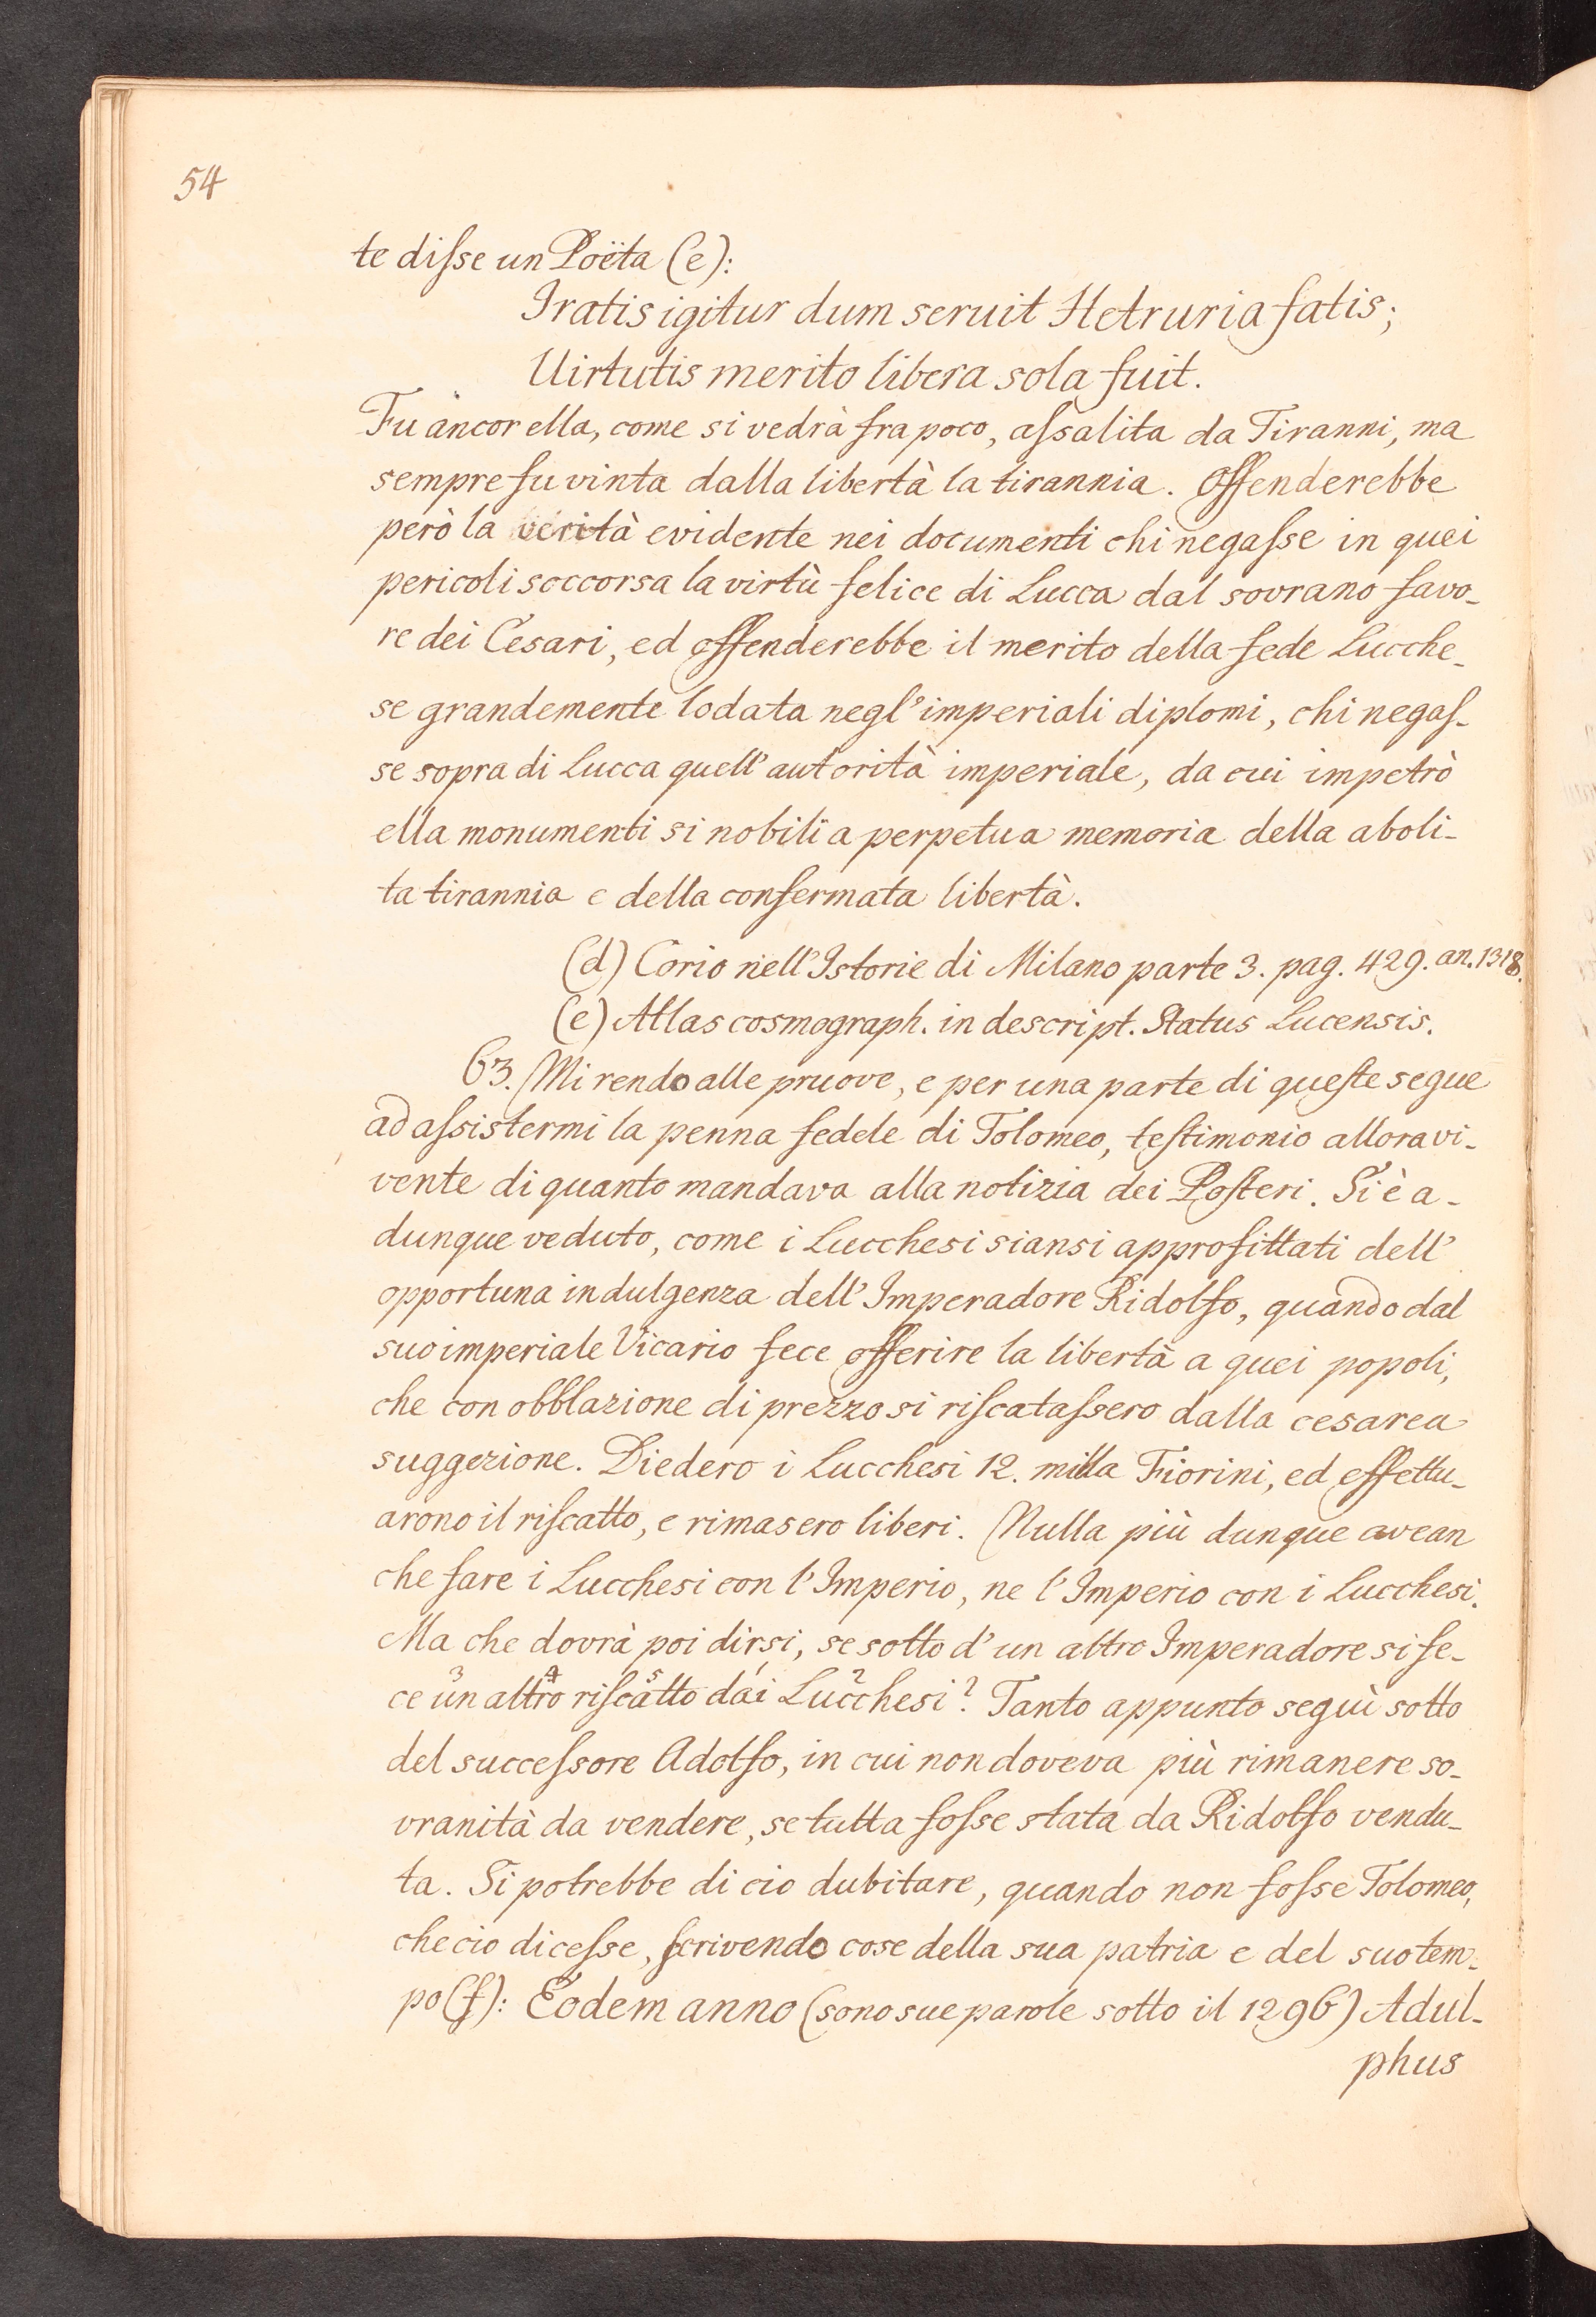 54
te disse un Poëta (e):
Iratis igitur dum seruit Hetruria fatis;
Uirtutis merito libera sola fuit.
Fu ancor ella, come si vedrà fra poco, assalita da Tiranni, ma
sempre fu vinta dalla libertà la tirannia. Offenderebbe
però la verità evidente nei documenti chi negasse in quei
pericoli soccorsa la virtù felice di Lucca dal sovrano favo-
re dei Cesari, ed offenderebbe il merito della fede Lucche-
se grandemente lodata negl'imperiali diplomi, chi negas-
se sopra di Lucca quell'autorità imperiale, da cui impetrò
ella monumenti si nobili a perpetua memoria della aboli-
ta tirannia e della confermata libertà.
(d) Corio nell'Istorie di Milano parte 3. pag. 429. an. 1318.
(e) Atlas cosmograph. in descript. Status Lucensis.
63. Mi rendo alle pruove, e per una parte di queste segue
ad assistermi la penna fedele di Tolomeo, testimonio allora vi-
vente di quanto mandava alla notizia dei Posteri. Si è a-
dunque veduto, come i Lucchesi siansi approfittati dell'
opportuna indulgenza dell'Imperadore Ridolfo, quando dal
suo imperiale Vicario fece offerire la libertà a quei popoli,
che con obblazione di prezzo si riscatassero dalla cesarea
suggezione. Diedero i Lucchesi 12. milla Fiorini, ed effettu-
arono il riscatto, e rimasero liberi. Nulla più dunque avean
che fare i Lucchesi con l'Imperio, ne l'Imperio con i Lucchesi.
Ma che dovrà poi dirsi, se sotto d'un altro Imperadore si fe-
3 4 5 1 2
ce un altro riscatto dai Lucchesi? Tanto appunto seguì sotto
del successore Adolfo, in cui non doveva più rimanere so-
vranità da vendere, se tutta fosse stata da Ridolfo vendu-
ta. Si potrebbe di cio dubitare, quando non fosse Tolomeo,
che cio dicesse, scrivendo cose della sua patria e del suo tem-
po (f): Eodem anno (sono sue parole sotto il 1296) Adul-
phus